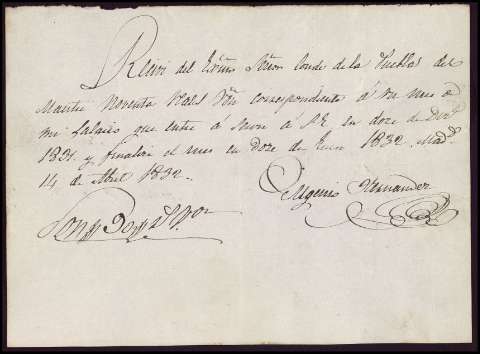 Recivi del Exmo Señor Conde de la Puebla del
Maestre noventa reales vn correspondiente á un mes de
mi salario que entre á servir á S.E. en doce de Dice
1831 y finalizo el mes en doce de Enero 1832. Madd
14 de Abril 1832.
Eugenio Hernandez
Son 90 rs vn